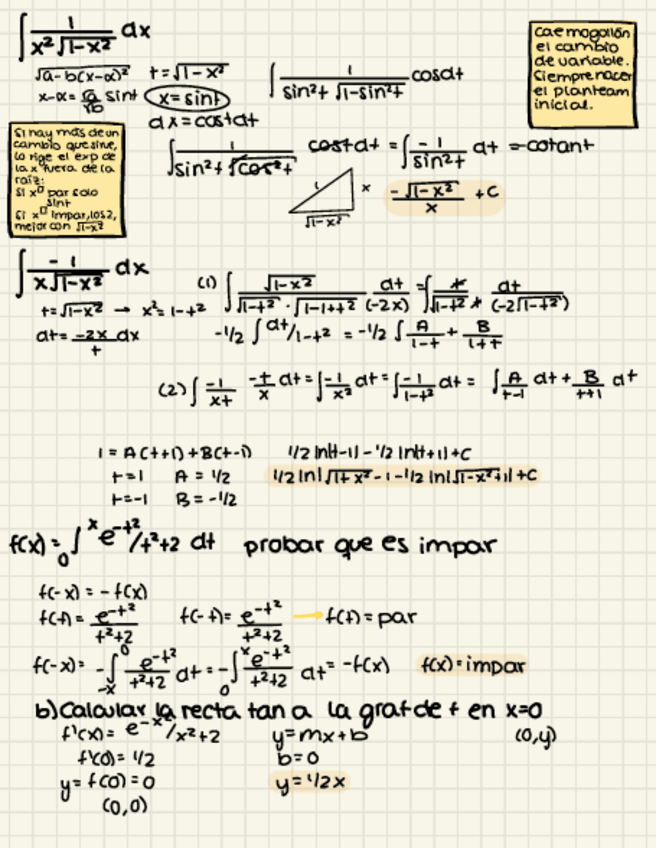 ∫ 1/(x²√(1-x²)) dx
√(a-b(x-α)²) t=√(1-x²) ∫ 1/(sin²t √(1-sin²t)) cosdt
x-α = √a/√b sint x=sint
dx=costdt
cae mogollón
el cambio
de variable.
Siempre hacer
el planteam
inicial.
Si hay más de un
cambio que sirve,
lo rige el exp de
la x fuera de la
raíz:
Si x□ par solo
sint
Si x□ impar, los 2,
mejor con √(1-x²)
∫ 1/(sin²t √(cos²t)) cost dt = ∫ -1/(sin²t) dt = -cotant
1 x √(1-x²)
-√(1-x²)/x +C
∫ -1/(x√(1-x²)) dx
t=√(1-x²) → x²=1-t²
dt = -2x dx/t
(1) ∫ √(1-x²)/(√(1-t²)·√(1-1+t²)) dt/(-2x) = ∫ t/(√(1-t²) t) dt/(-2√(1-t²))
-1/2 ∫ dt/1-t² = -1/2 ∫ A/(1-t) + B/(1+t)
(2) ∫ -1/(xt) -t/x dt = ∫ -1/x² dt = ∫ -1/(1-t²) dt = ∫ A/(t-1) dt + B/(t+1) dt
1 = A(t+1) + B(t-1) 1/2 ln|t-1| - 1/2 ln|t+1| + C
t=1 A = 1/2 1/2 ln|√(1+x²) -1 - 1/2 ln|√(1-x²)+1| + C
t=-1 B = -1/2
f(x) = ₀∫ˣ e^(-t²)/t²+2 dt probar que es impar
f(-x) = -f(x)
f(t) = e^(-t²)/(t²+2) f(-t) = e^(-t²)/(t²+2) → f(t) = par
f(-x) = -∫₋ₓ⁰ e^(-t²)/(t²+2) dt = -∫₀ˣ e^(-t²)/(t²+2) dt = -f(x) f(x) = impar
b) Calcular la recta tan a la graf de f en x=0
f'(x) = e^(-x²)/x²+2 y=mx+b (0,y)
f'(0) = 1/2 b=0
y = f(0) = 0 y = 1/2x
(0,0)